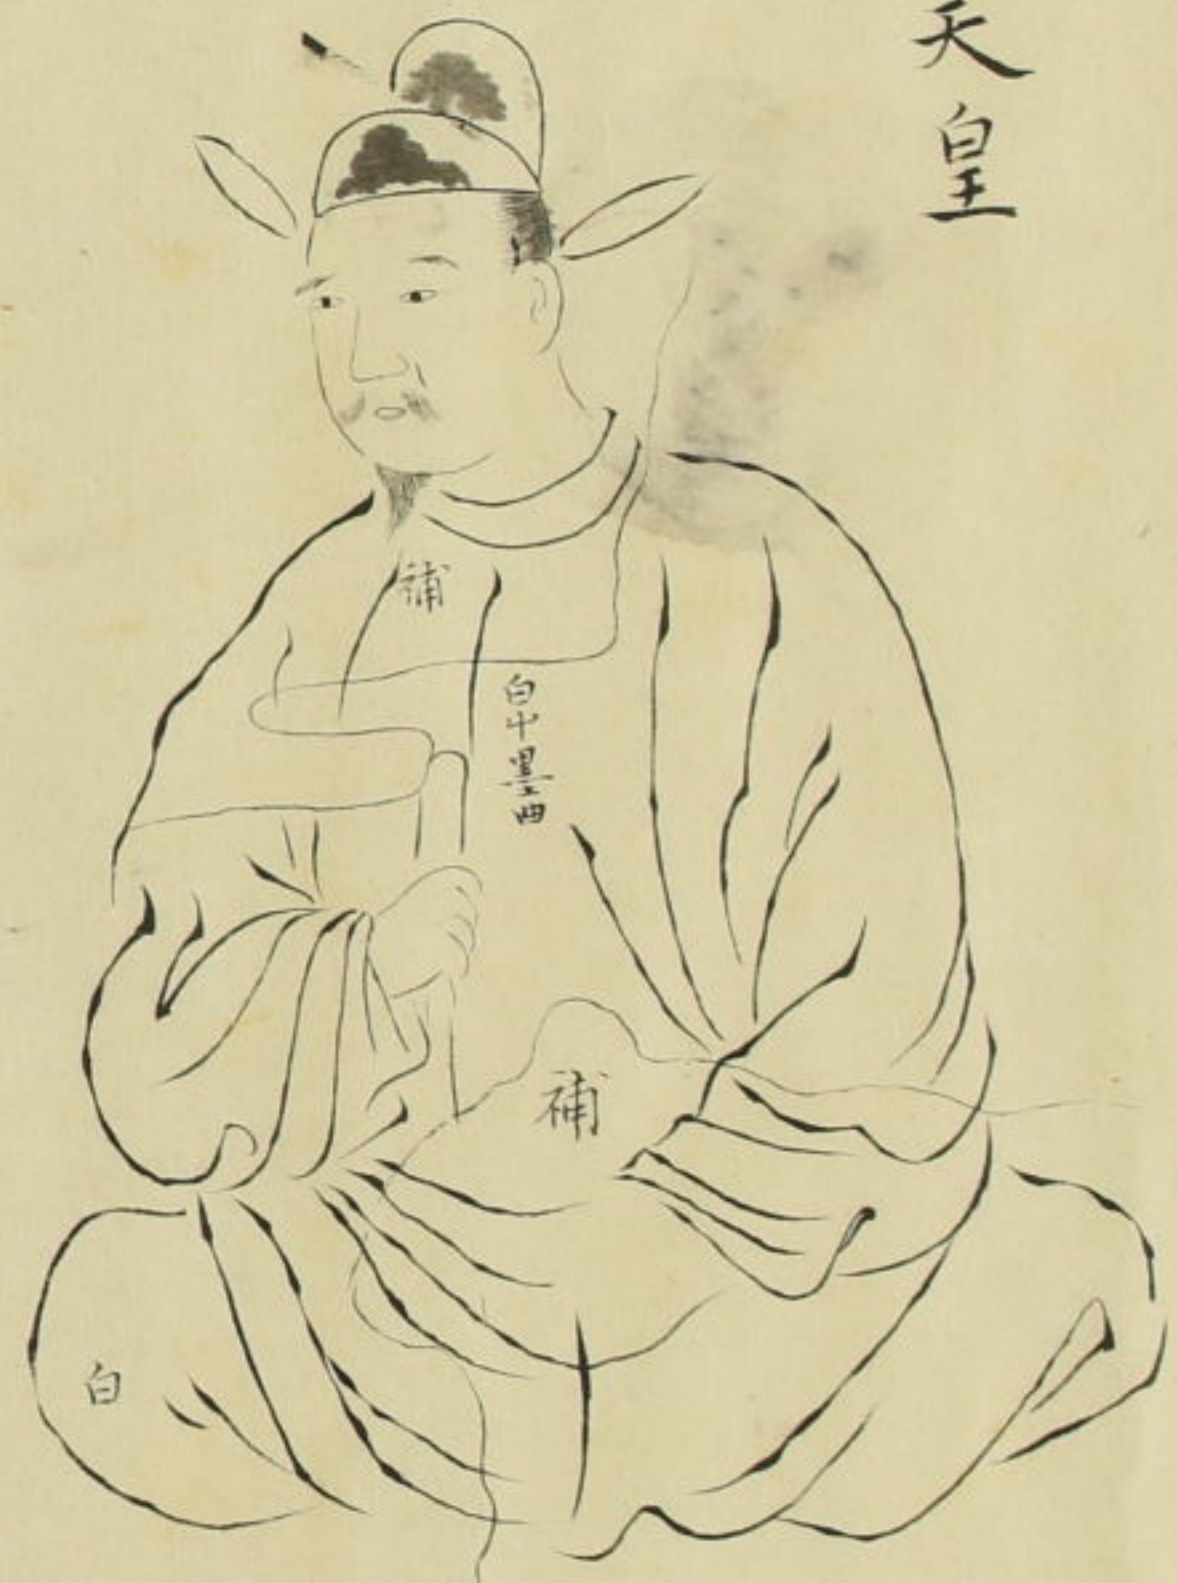 天皇
補
白中墨曲
補
白